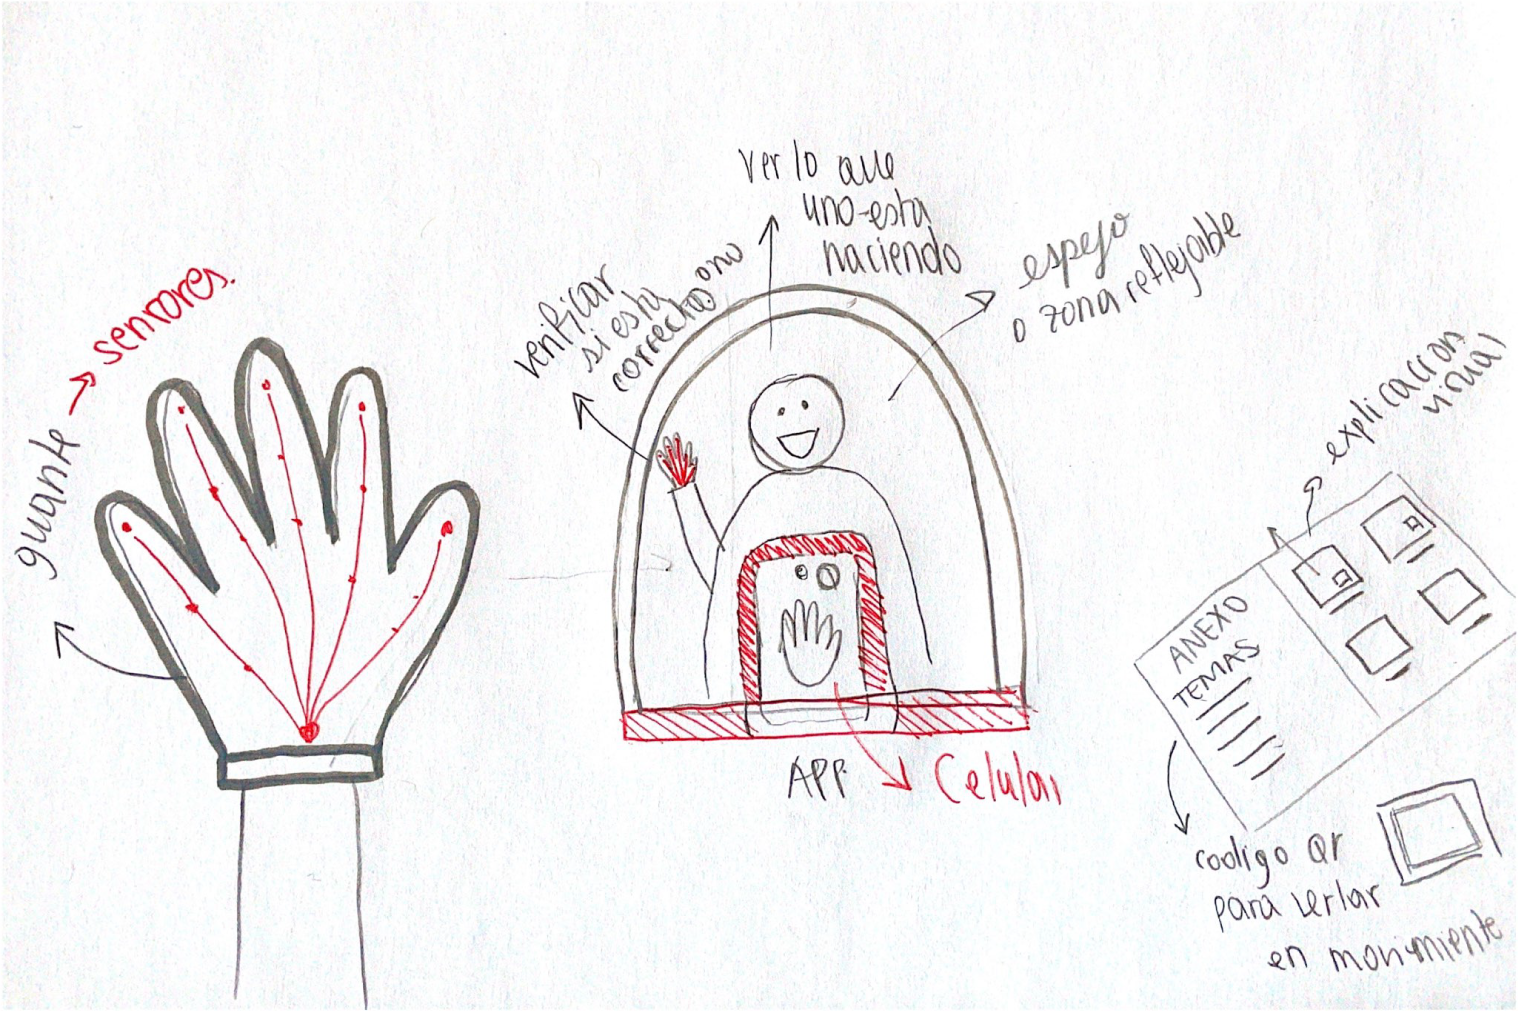 guante → sensores.
verificar
si esta
correcto o no
ver lo que
uno esta
haciendo
espejo
o zona reflejable
APP.
Celular
explicacion
visual
ANEXO
TEMAS
codigo QR
para verlar
en movimiente